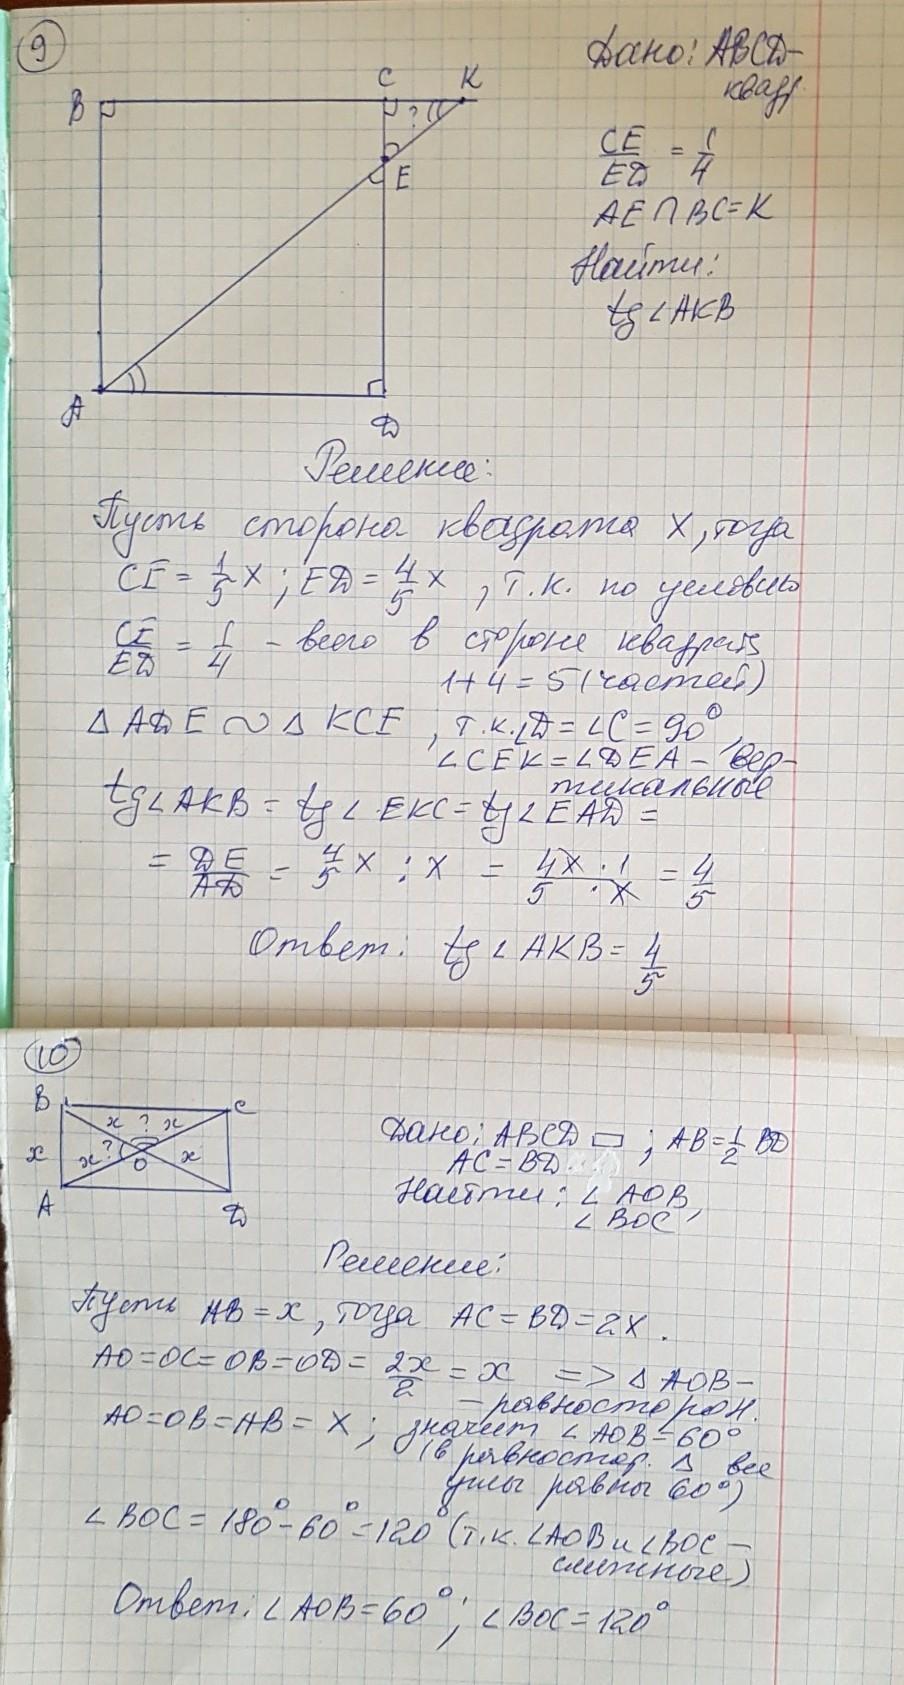 9
Дано: ABCD-
квадр
B C K
E
A D
?
CE/ED = 1/4
AE ∩ BC = K
Найти:
tg ∠AKB
Решение:
Пусть сторона квадрата x, тогда
CE = 1/5 x ; ED = 4/5 x , т.к. по условию
CE/ED = 1/4 – всего в стороне квадрата
1+4=5 (частей)
△ ADE ∾ △ KCE , т.к. ∠D = ∠C = 90°,
∠CEK = ∠DEA – вер-
тикальные
tg∠AKB = tg∠EKC = tg∠EAD =
= DE/AD = 4/5 x : x = 4x · 1 / 5 · x = 4/5
Ответ: tg ∠AKB = 4/5
10
B C
x ? x
x x ? x
O
A D
Дано: ABCD ▭ ; AB = 1/2 BD
AC = BD
Найти: ∠AOB,
∠BOC
Решение:
Пусть AB = x, тогда AC = BD = 2x.
AO = OC = OB = OD = 2x/2 = x => △ AOB –
– равносторон.
AO = OB = AB = x ; значит ∠AOB = 60°
(в равностор. △ все
углы равны 60°)
∠BOC = 180° – 60° = 120° (т.к. ∠AOB и ∠BOC –
смежные)
Ответ: ∠AOB = 60° ; ∠BOC = 120°